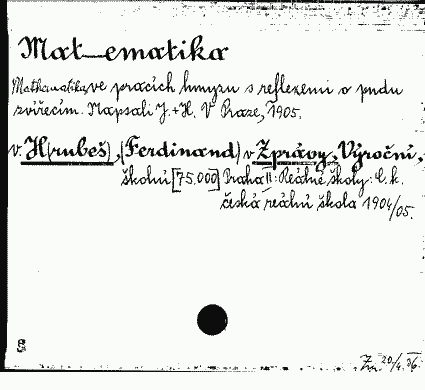 Mat—ematika
Mathematika ve pracích hmyzu s reflexemi o pudu
zvířecím. Napsali J. + H. V Praze, 1905.
v. H(rubeš), (Ferdinand) v Zprávy, Výroční,
školní [75.000] Praha II: Reálné školy: C. k.
česká reální škola 1904/05.
8
Zn 20/4.36.